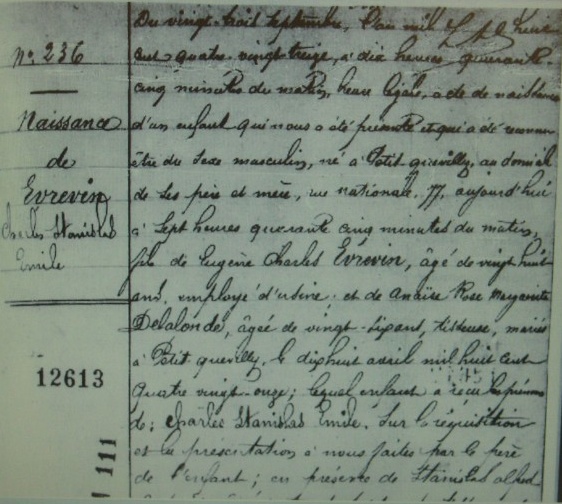 N° 236
Naissance
de
Evrevin
Charles Stanislas
Emile
12613
111
Du vingt-trois Septembre, l'an mil huit
cent quatre-vingt-treize, à dix heures quarante-
cinq minutes du matin, heure légale, acte de naissance
d'un enfant qui nous a été présenté et qui a été reconnu
être du sexe masculin, né à Petit quevilly, au domicile
de ses père et mère, rue nationale, 77, aujourd'hui
à sept heures quarante cinq minutes du matin,
fils de Eugène Charles Evrevin, âgé de vingt huit
ans, employé d'usine; et de Anaïse Rose Marguerite
Delalonde, âgée de vingt-six ans, tisseuse, mariés
à Petit quevilly, le dix huit avril mil huit cent
quatre vingt-onze; lequel enfant a reçu les prénoms
de; Charles Stanislas Emile. Sur la réquisition
et la présentation à nous faites par le père
de l'enfant; en présence de Stanislas